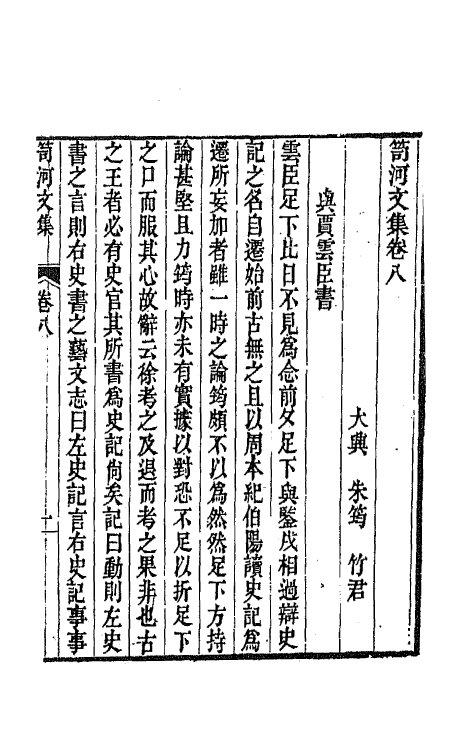 笥河文集卷八
大興　朱筠　竹君
與賈雲臣書
雲臣足下比日不見爲念前夕足下與鑒戌相過辯史
記之名自遷始前古無之且以周本紀伯陽讀史記爲
遷所妄加者雖一時之論筠頗不以爲然然足下方持
論甚堅且力筠時亦未有實據以對恐不足以折足下
之口而服其心故辭云徐考之及退而考之果非也古
之王者必有史官其所書爲史記尙矣記曰動則左史
書之言則右史書之藝文志曰左史記言右史記事事
笥河文集
卷八
一